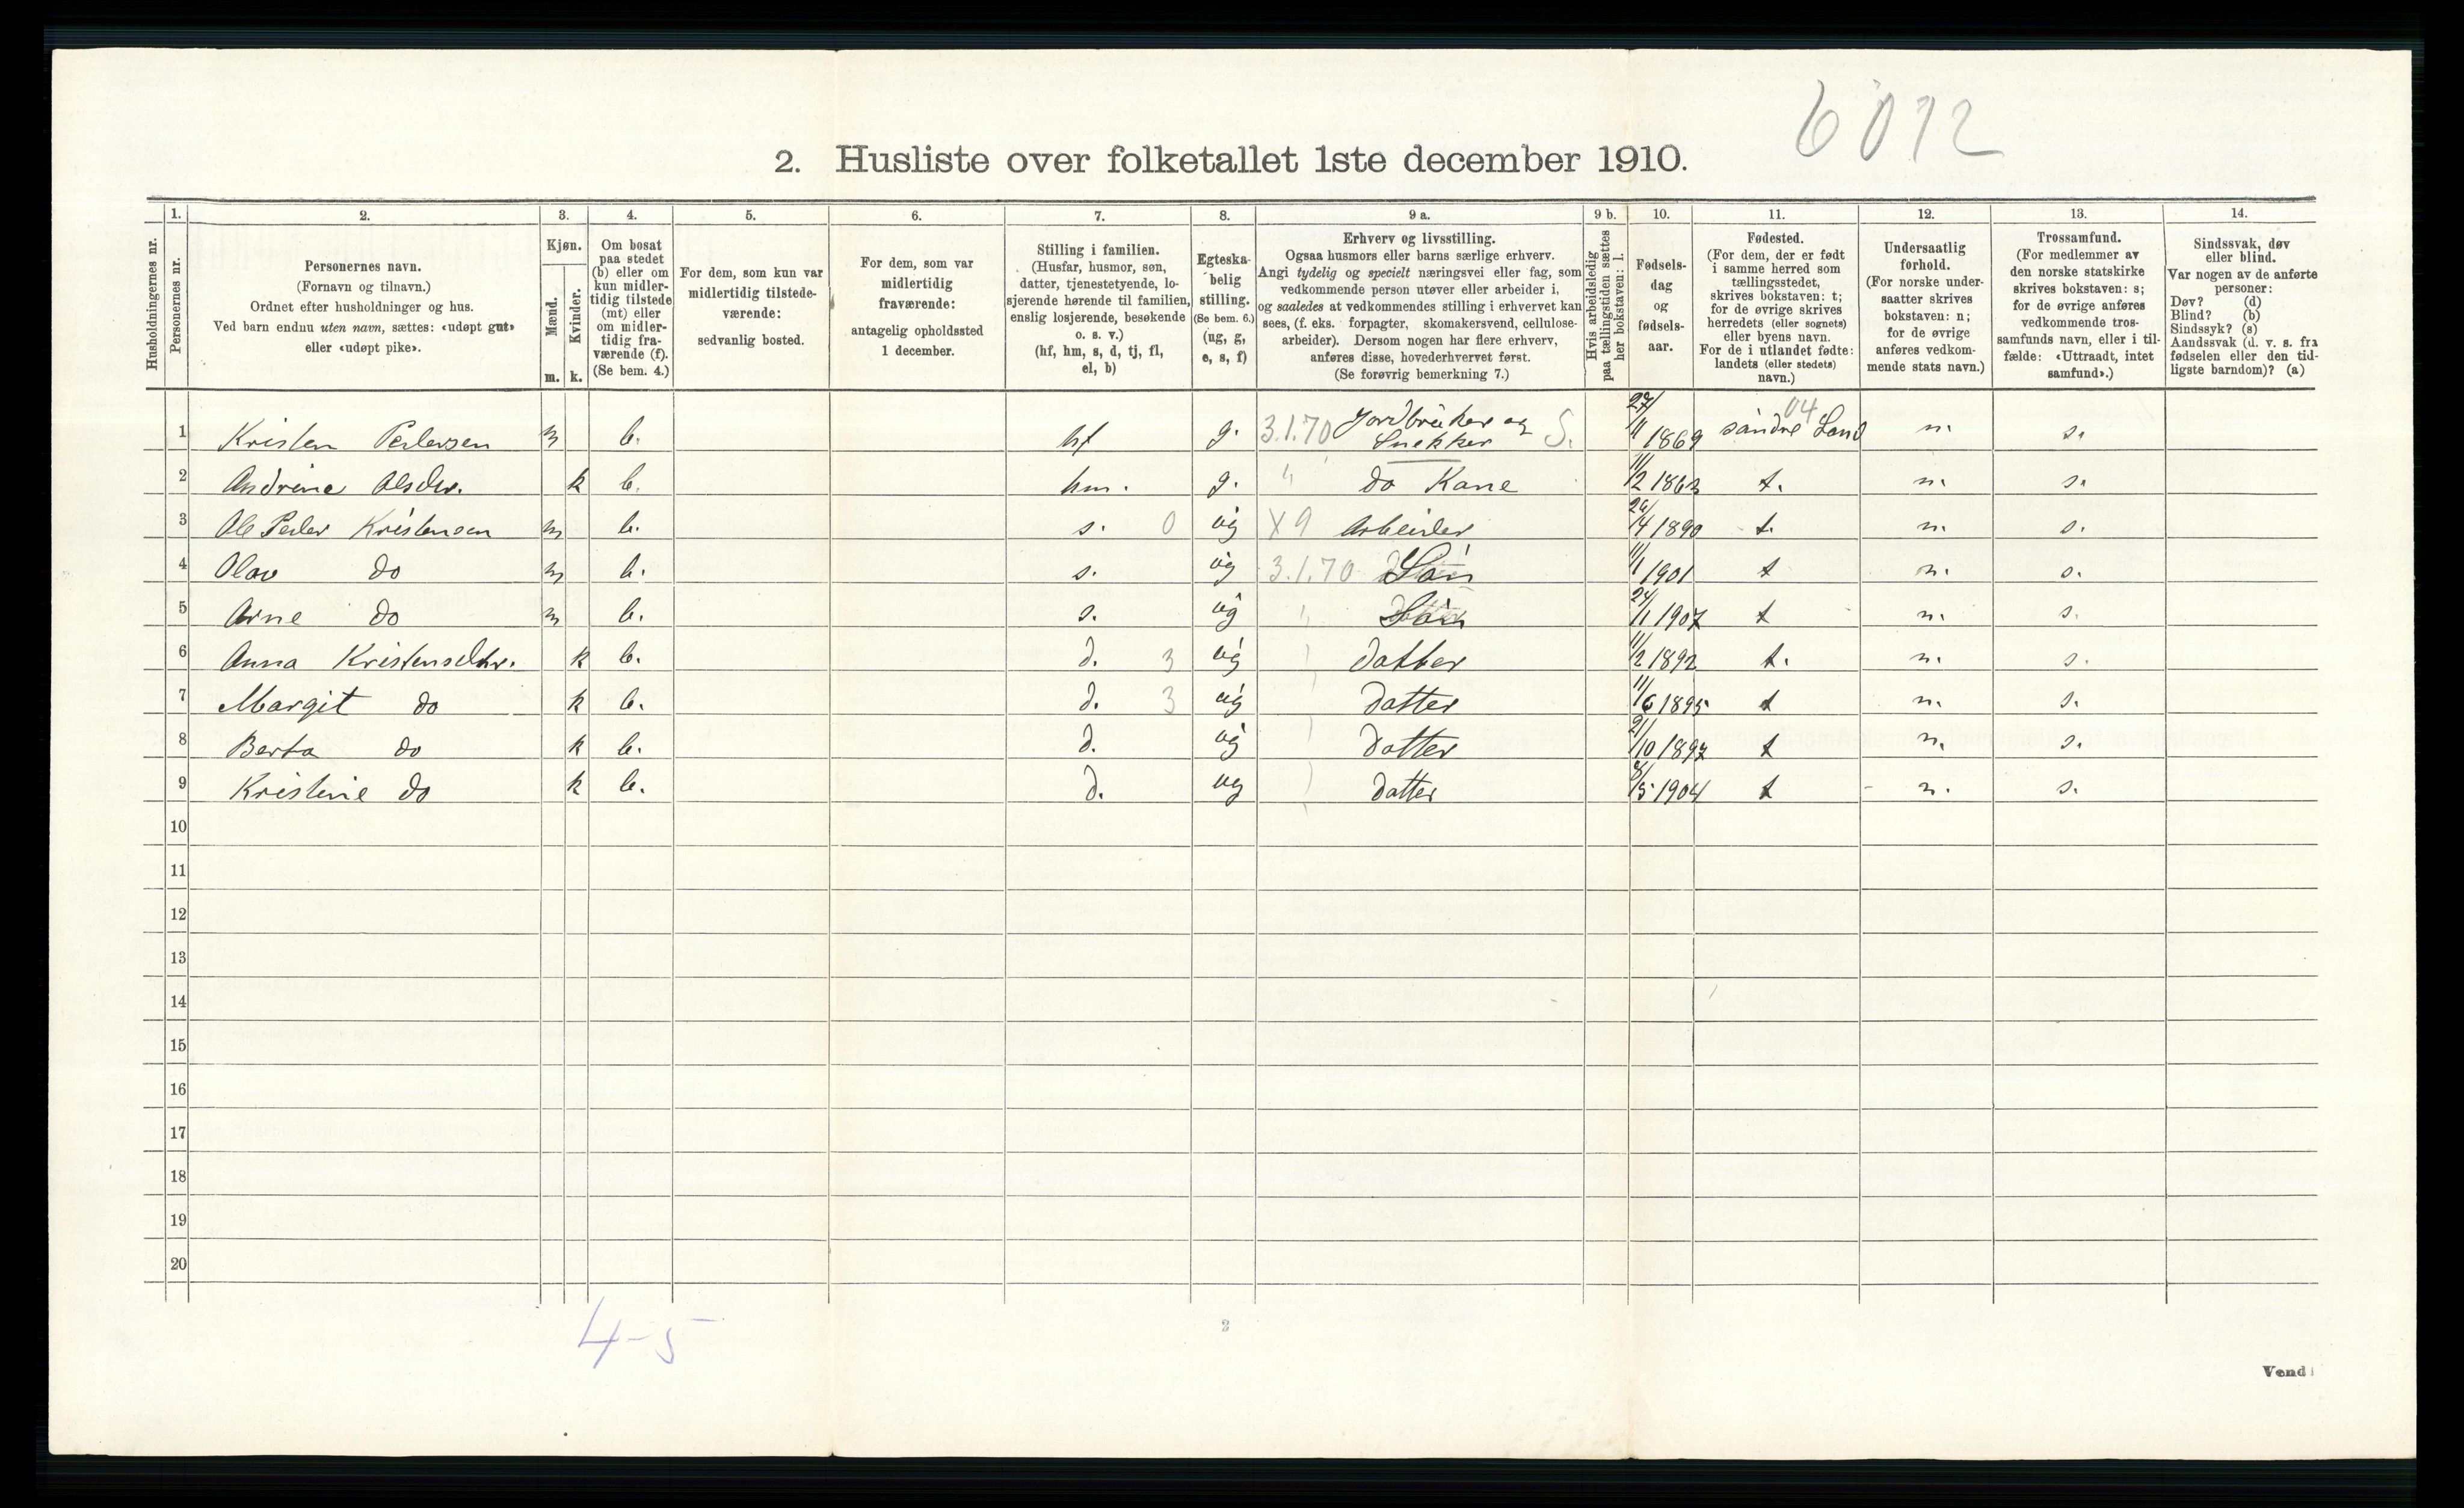 6012
2. Husliste over folketallet 1ste december 1910.
Husholdningernes nr.
1.
Personernes nr.
2.
Personernes navn.
(Fornavn og tilnavn.)
Ordnet efter husholdninger og hus.
Ved barn endnu uten navn, sættes: «udøpt gut»
eller «udøpt pike».
3.
Kjøn.
Mænd.
Kvinder.
m. k.
4.
Om bosat
paa stedet
(b) eller om
kun midler-
tidig tilstede
(mt) eller
om midler-
tidig fra-
værende (f).
(Se bem. 4.)
5.
For dem, som kun var
midlertidig tilstede-
værende:
sedvanlig bosted.
6.
For dem, som var
midlertidig
fraværende:
antagelig opholdssted
1 december.
7.
Stilling i familien.
(Husfar, husmor, søn,
datter, tjenestetyende, lo-
sjerende hørende til familien,
enslig losjerende, besøkende
o. s. v.)
(hf, hm, s, d, tj, fl,
el, b)
8.
Egteska-
belig
stilling.
(Se bem. 6.)
(ug, g,
e, s, f)
9 a.
Erhverv og livsstilling.
Ogsaa husmors eller barns særlige erhverv.
Angi tydelig og specielt næringsvei eller fag, som
vedkommende person utøver eller arbeider i,
og saaledes at vedkommendes stilling i erhvervet kan
sees, (f. eks. forpagter, skomakersvend, cellulose-
arbeider). Dersom nogen har flere erhverv,
anføres disse, hovederhvervet først.
(Se forøvrig bemerkning 7.)
9 b.
Hvis arbeidsledig
paa tællingstiden sættes
her bokstaven: l.
10.
Fødsels-
dag
og
fødsels-
aar.
11.
Fødested.
(For dem, der er født
i samme herred som
tællingsstedet,
skrives bokstaven: t;
for de øvrige skrives
herredets (eller sognets)
eller byens navn.
For de i utlandet fødte:
landets (eller stedets)
navn.)
12.
Undersaatlig
forhold.
(For norske under-
saatter skrives
bokstaven: n;
for de øvrige
anføres vedkom-
mende stats navn.)
13.
Trossamfund.
(For medlemmer av
den norske statskirke
skrives bokstaven: s;
for de øvrige anføres
vedkommende tros-
samfunds navn, eller i til-
fælde: «Uttraadt, intet
samfund».)
14.
Sindssvak, døv
eller blind.
Var nogen av de anførte
personer:
Døv? (d)
Blind? (b)
Sindssyk? (s)
Aandssvak (d. v. s. fra
fødselen eller den tid-
ligste barndom)? (a)
1 Kristen Pedersen m b. hf g. 3.1.70 Jordbruker og Snekker S. 27/11 1869 søndre Land 04 n. s.
2 Andrine Olsdtr. k b. hm. g. " do Kone 11/2 1863 t. n. s.
3 Ole Peder Kristensen m b. s. 0 ug X9 Arbeider 26/4 1890 t. n. s.
4 Olav do m b. s. ug 3.1.70 Søn 11/1 1901 t n. s.
5 Arne do m b. s. ug " Søn 24/11 1907 t n. s.
6 Anna Kristensdtr. k b. d. 3 ug Datter 11/2 1892 t. n. s.
7 Margit do k b. d. 3 ug Datter 11/6 1895 t n. s.
8 Berta do k b. d. ug Datter 21/10 1897 t n. s.
9 Kristine do k b. d. ug Datter 8/5 1904 t n. s.
10
11
12
13
14
15
16
17
18
19
20
4-5
2
Vend